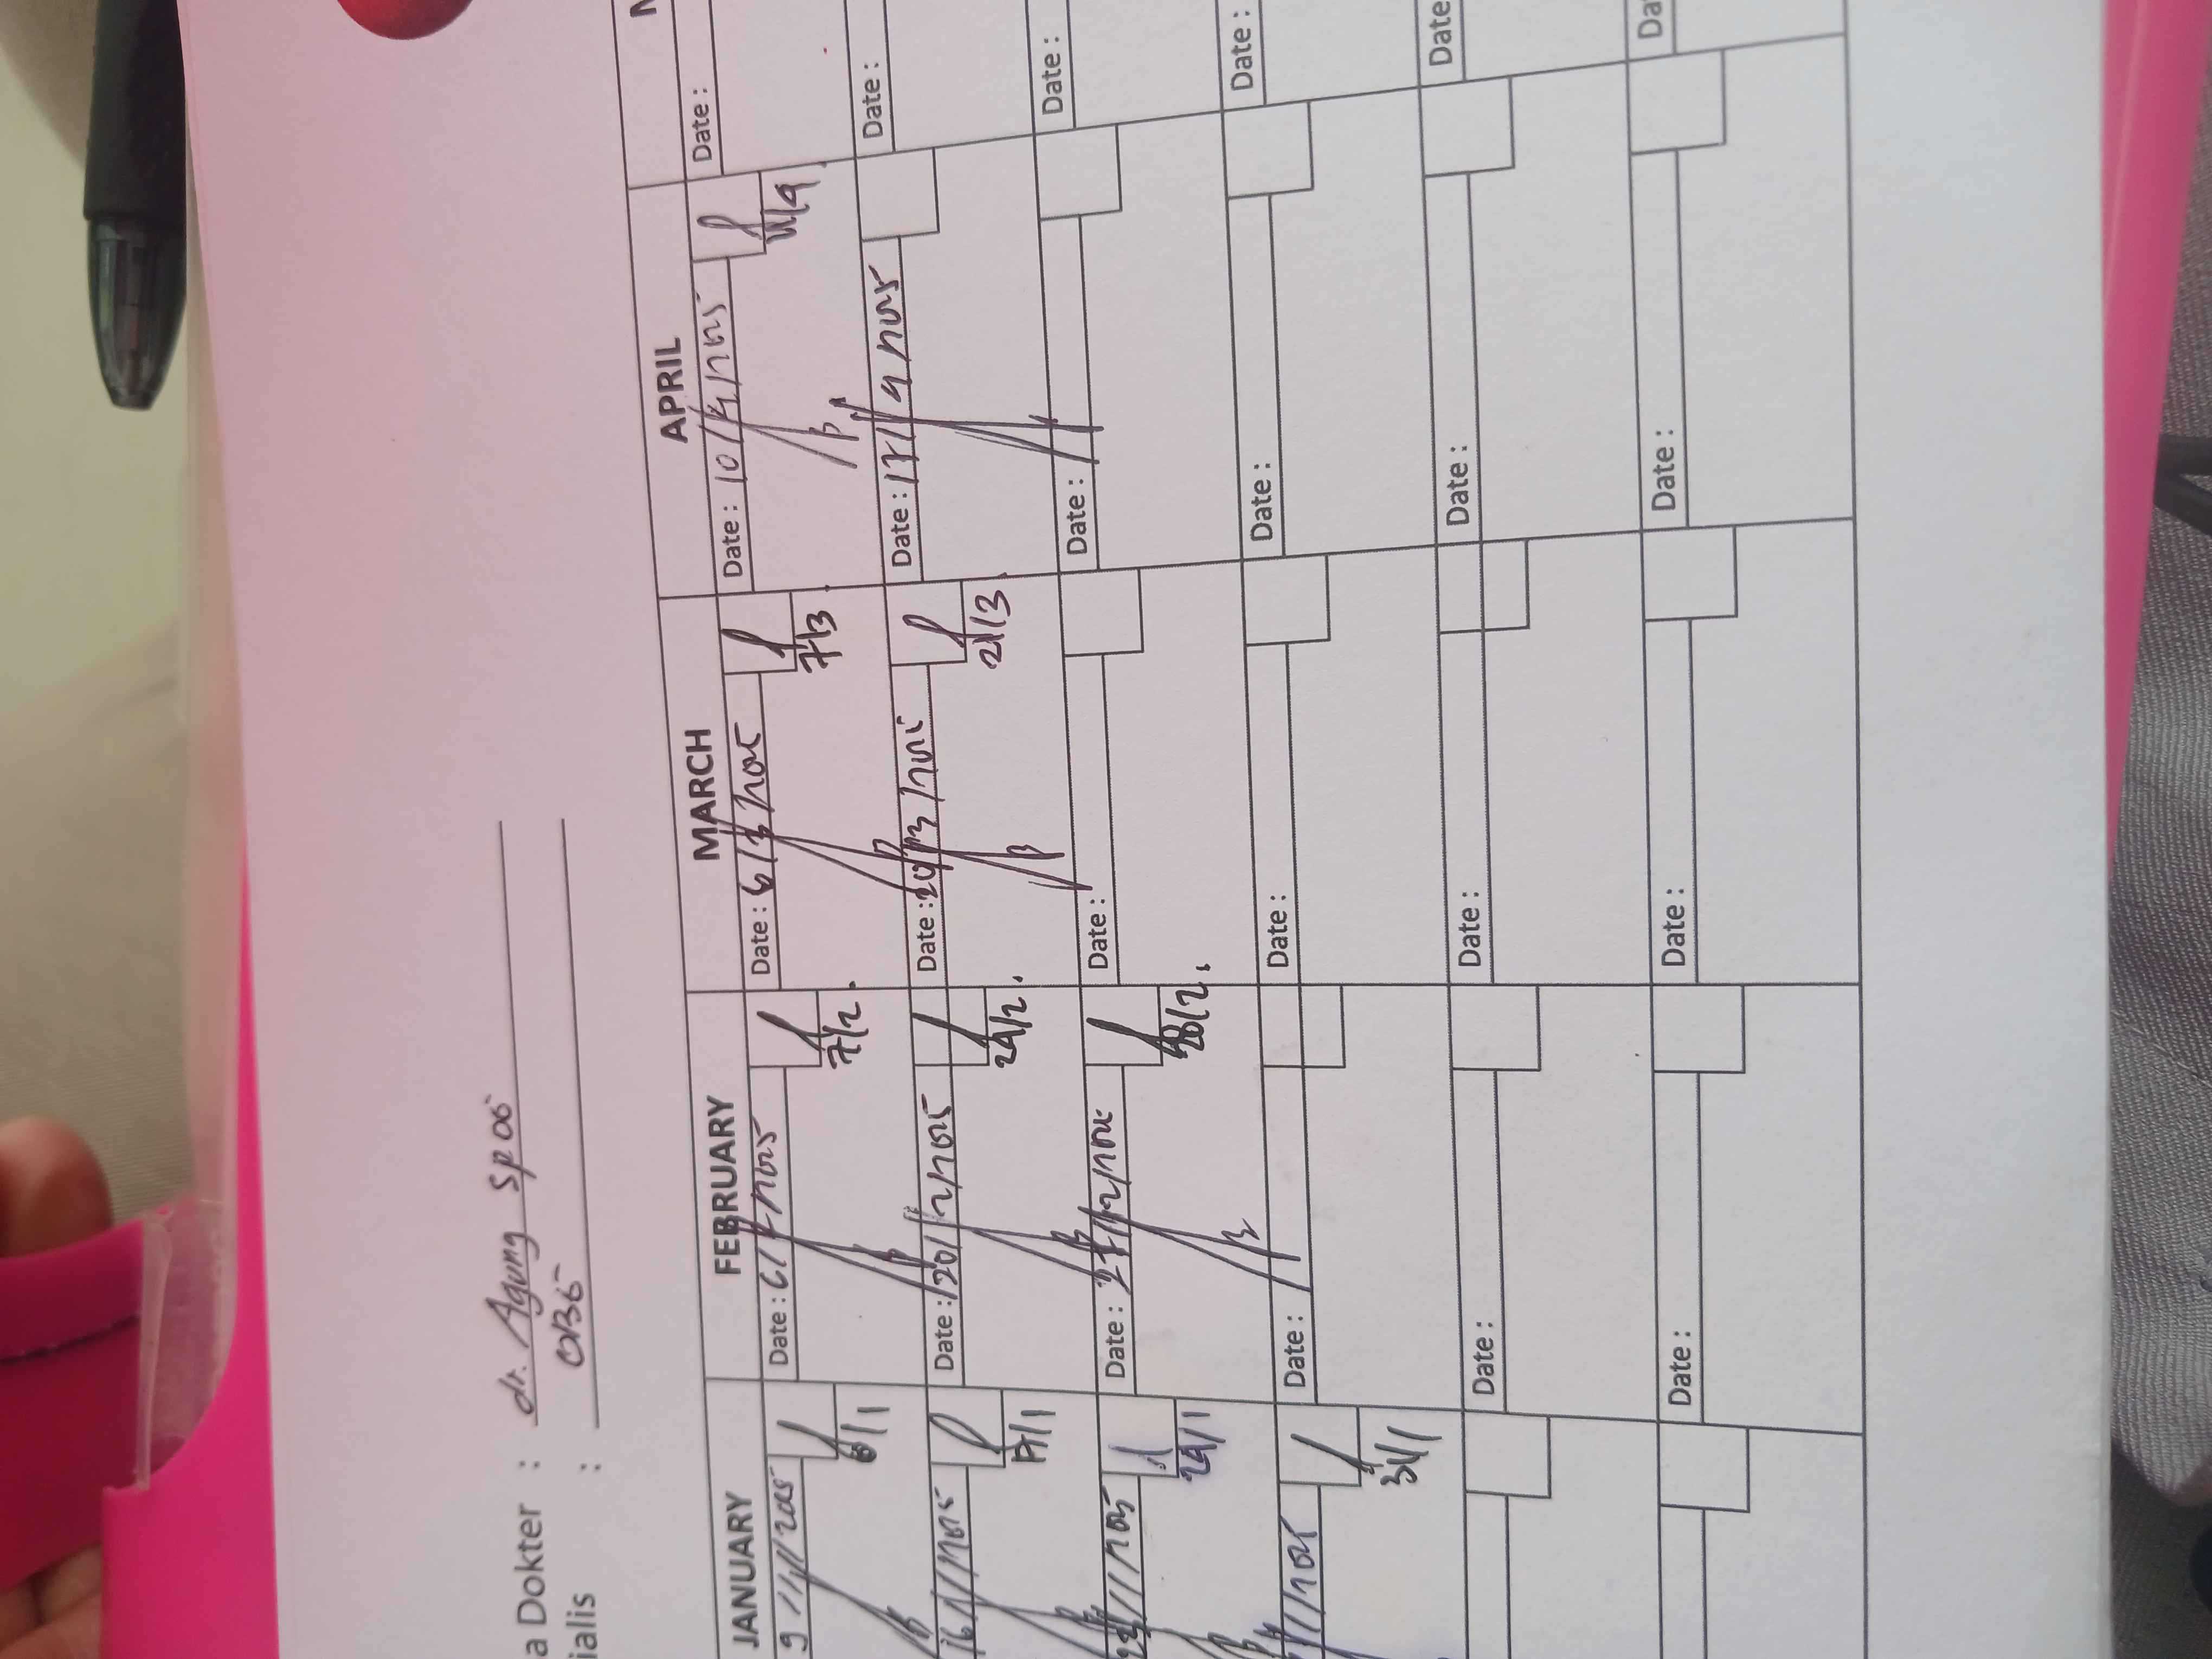 a Dokter : dr. Agung SpOG
ialis : OBG
JANUARY FEBRUARY MARCH APRIL
9/1/2025 Date : 6/2/2025 Date : 6/3/2025 Date : 10/4/2025 Date :
7/2. 7/3 11/4
16/1/2025 Date : 20/2/2025 Date : 20/3/2025 Date : 17/4/2025 Date :
17/1 24/2. 21/3
/1/2025 Date : 27/2/2025 Date : Date : Date :
24/1 28/2.
/1/2025 Date : Date : Date : Date :
31/1
Date : Date : Date : Date
Date : Date : Date : Da